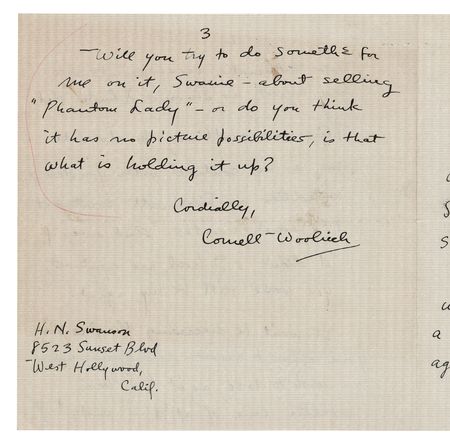 3
Will you try to do somethg for
me on it, Swanie – about selling
"Phantom Lady" – or do you think
it has no picture possibilities, is that
what is holding it up?
Cordially,
Cornell Woolrich
H. N. Swanson
8523 Sunset Blvd
West Hollywood,
Calif.